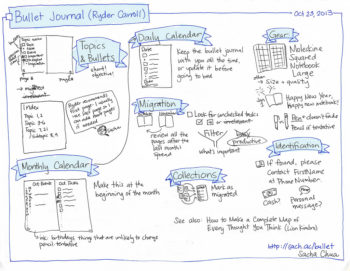 Bullet Journal (Ryder Carroll)
Oct 23, 2013
Topics & Bullets
short!
objective!
Topic name
Task
Note
page #
page #
Index
Topic 1, 2
Topic 3-6
Topic 7, 21
Subtopic 8, 9
Ryder recommends
you can
add more pages
if wanted
Daily Calendar
Date
Keep the bullet journal
with you all the time,
or update it before
going to bed.
Migration
review all
the pages
after the last
month's spread
Look for unchecked tasks
or
Filter
what's important
productive
Gear
Moleskine
Squared
Notebook
Large
Size + quality
Happy New Year,
Happy new notebook!
Pen* doesn't fade
Pencil if tentative
Identification
If found, please
Contact FirstName
at Phone Number.
Cash?
Personal
message?
Monthly Calendar
Cal Events
Cal Tasks
Make this at
the beginning of the month
Ink: birthdays, things that are unlikely to change
pencil: tentative
Collections
Mark as
migrated
See also: How to Make a Complete Map of
Every Thought You Think (Lion Kimbro)
http://sach.ac/bullet
Sacha Chua